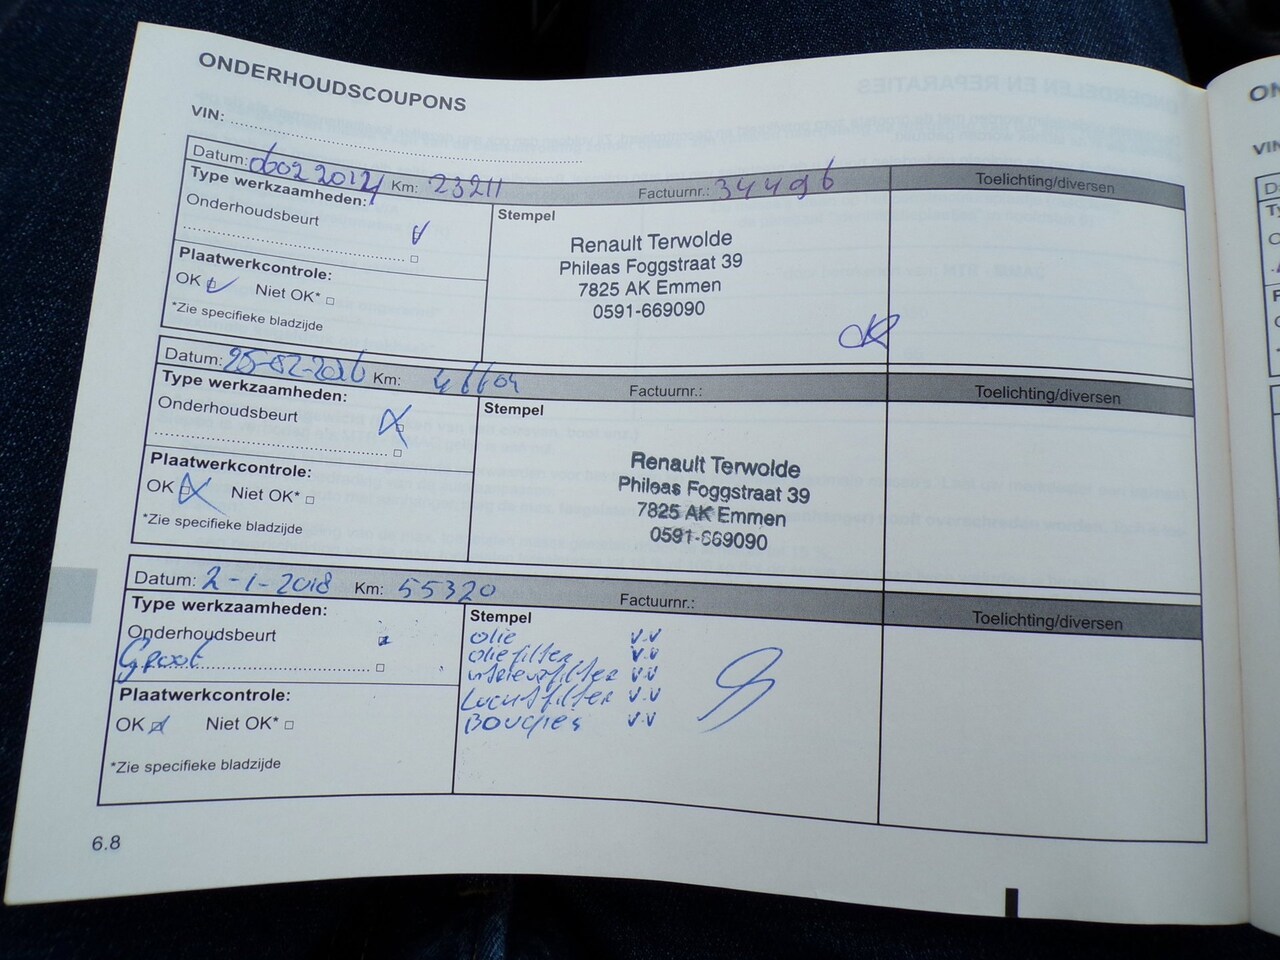 ONDERHOUDSCOUPONS
VIN:
Datum: 0602 2014 Km: 23211 Factuurnr.: 34496 Toelichting/diversen
Type werkzaamheden:
Onderhoudsbeurt
Stempel
Renault Terwolde
Phileas Foggstraat 39
7825 AK Emmen
0591-669090
Plaatwerkcontrole:
OK Niet OK*
*Zie specifieke bladzijde
Datum: 25-02-2016 Km: 46604 Factuurnr.: Toelichting/diversen
Type werkzaamheden:
Onderhoudsbeurt
Stempel
Renault Terwolde
Phileas Foggstraat 39
7825 AK Emmen
0591-669090
Plaatwerkcontrole:
OK Niet OK*
*Zie specifieke bladzijde
Datum: 2-1-2018 Km: 55320 Factuurnr.: Toelichting/diversen
Type werkzaamheden:
Onderhoudsbeurt
Groot
Stempel
olie v.v
oliefilter v.v
interieurfilter v.v
Luchtfilter v.v
Bougies v.v
Plaatwerkcontrole:
OK Niet OK*
*Zie specifieke bladzijde
6.8